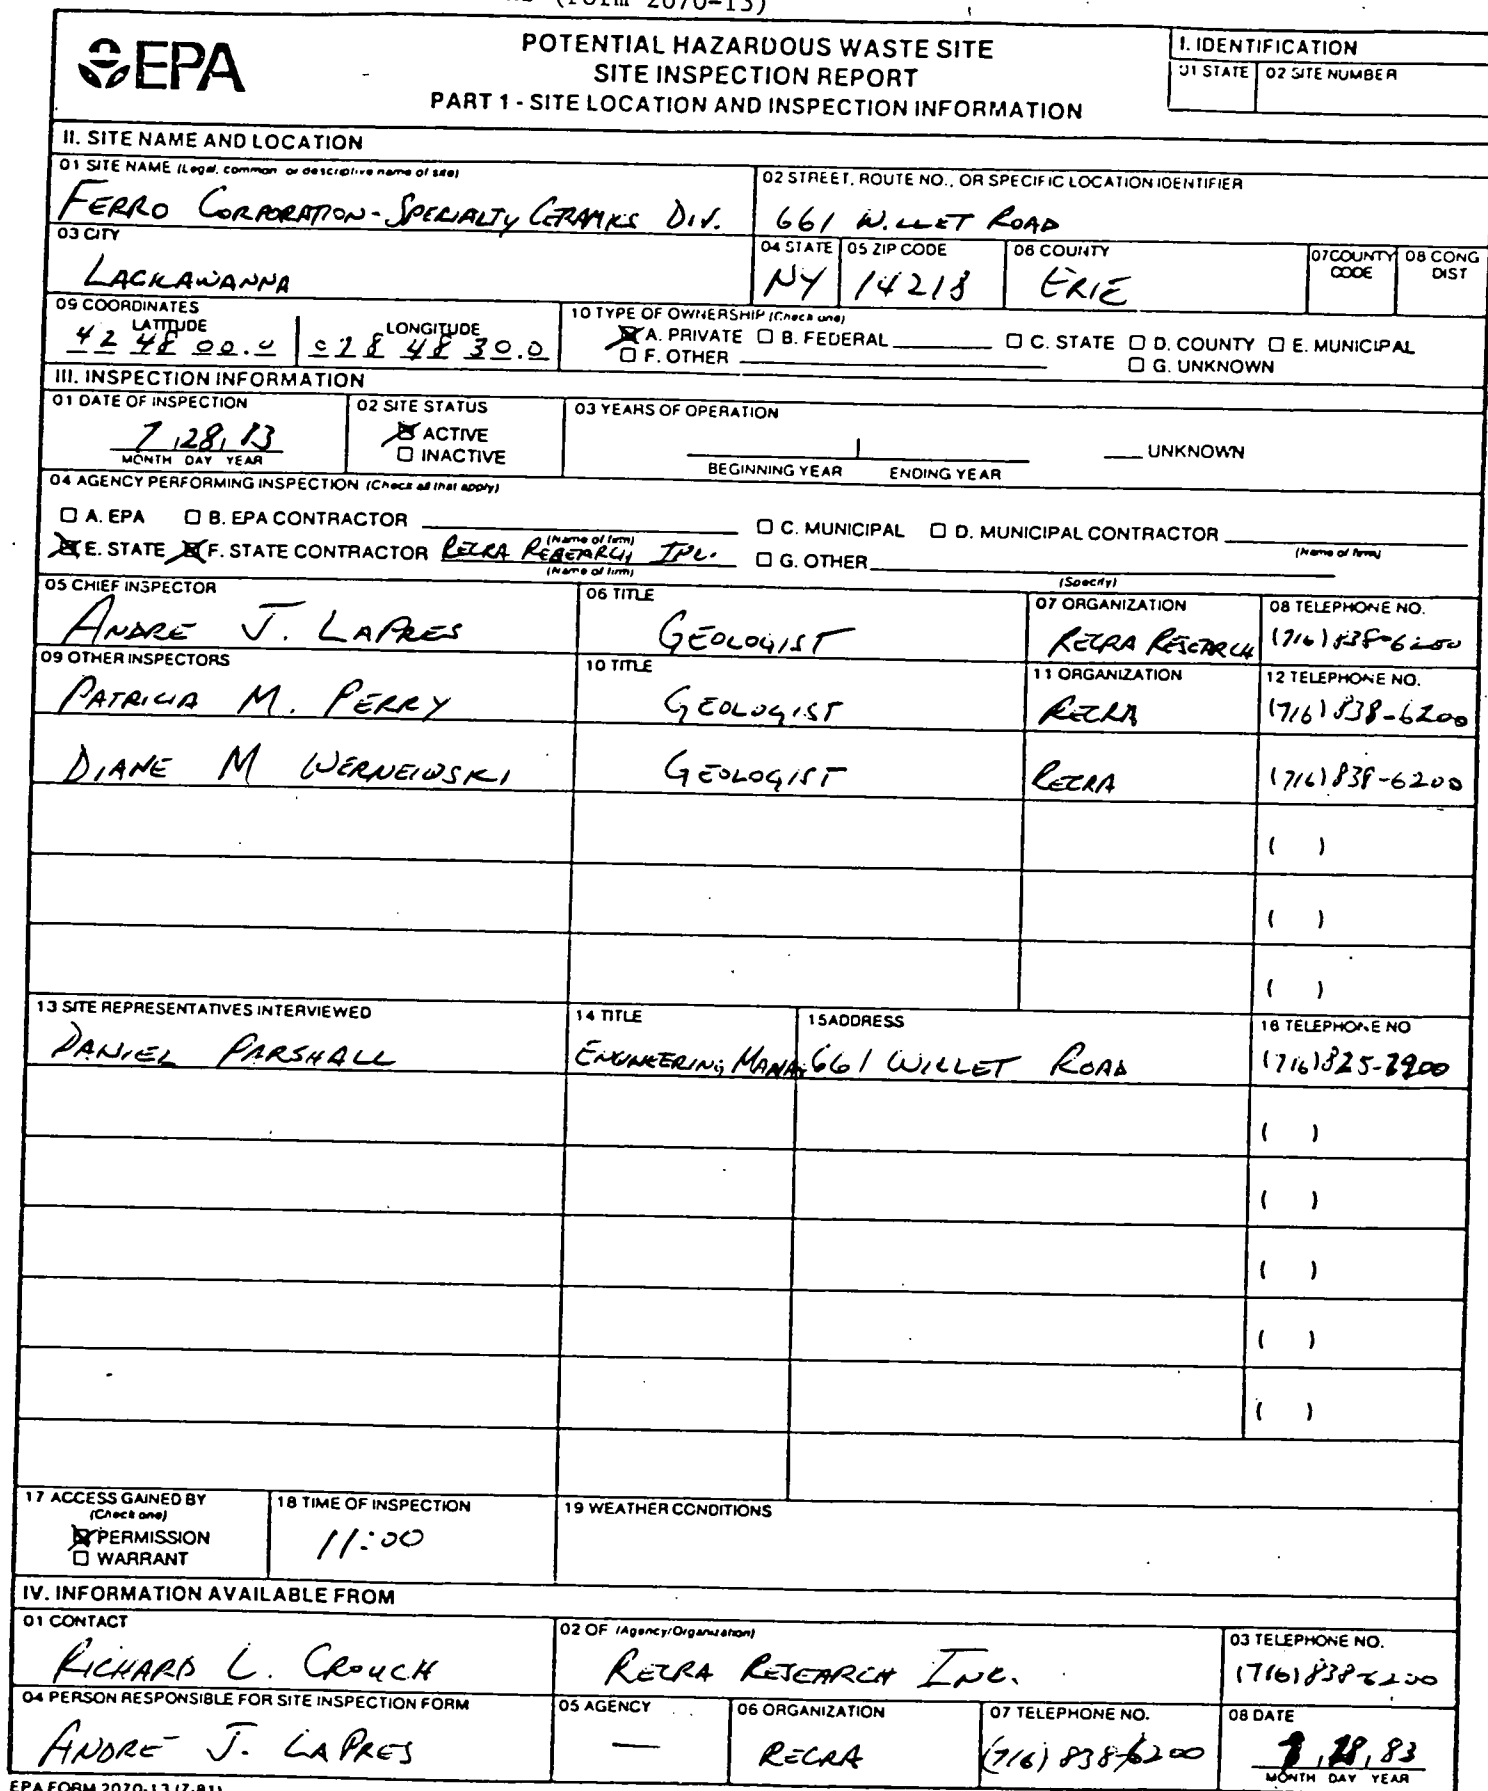 (Form 2070-13)
EPA
POTENTIAL HAZARDOUS WASTE SITE
SITE INSPECTION REPORT
PART 1 - SITE LOCATION AND INSPECTION INFORMATION
I. IDENTIFICATION
01 STATE 02 SITE NUMBER
II. SITE NAME AND LOCATION
01 SITE NAME (Legal, common, or descriptive name of site)
FERRO CORPORATION - SPECIALTY CERAMICS DIV.
02 STREET, ROUTE NO., OR SPECIFIC LOCATION IDENTIFIER
661 WILLET ROAD
03 CITY
LACKAWANNA
04 STATE
NY
05 ZIP CODE
14218
06 COUNTY
ERIE
07 COUNTY CODE
08 CONG DIST
09 COORDINATES
LATITUDE
42 48 00.0
LONGITUDE
078 48 30.0
10 TYPE OF OWNERSHIP (Check one)
A. PRIVATE B. FEDERAL C. STATE D. COUNTY E. MUNICIPAL
F. OTHER G. UNKNOWN
III. INSPECTION INFORMATION
01 DATE OF INSPECTION
7, 28, 83
MONTH DAY YEAR
02 SITE STATUS
ACTIVE
INACTIVE
03 YEARS OF OPERATION
UNKNOWN
BEGINNING YEAR ENDING YEAR
04 AGENCY PERFORMING INSPECTION (Check all that apply)
A. EPA B. EPA CONTRACTOR C. MUNICIPAL D. MUNICIPAL CONTRACTOR
(Name of firm) (Name of firm)
E. STATE F. STATE CONTRACTOR RECRA RESEARCH, INC. G. OTHER
(Name of firm) (Specify)
05 CHIEF INSPECTOR
ANDRE J. LAPRES
06 TITLE
GEOLOGIST
07 ORGANIZATION
RECRA RESEARCH
08 TELEPHONE NO.
(716) 838-6200
09 OTHER INSPECTORS
PATRICIA M. PERRY
10 TITLE
GEOLOGIST
11 ORGANIZATION
RECRA
12 TELEPHONE NO.
(716) 838-6200
DIANE M WERNEIWSKI GEOLOGIST RECRA (716) 838-6200
( )
( )
( )
13 SITE REPRESENTATIVES INTERVIEWED
DANIEL PARSHALL
14 TITLE
ENGINEERING MANA.
15 ADDRESS
661 WILLET ROAD
16 TELEPHONE NO
(716) 825-7900
( )
( )
( )
( )
( )
17 ACCESS GAINED BY
(Check one)
PERMISSION
WARRANT
18 TIME OF INSPECTION
11:00
19 WEATHER CONDITIONS
IV. INFORMATION AVAILABLE FROM
01 CONTACT
RICHARD L. CROUCH
02 OF (Agency/Organization)
RECRA RESEARCH INC.
03 TELEPHONE NO.
(716) 838-6200
04 PERSON RESPONSIBLE FOR SITE INSPECTION FORM
ANDRE J. LAPRES
05 AGENCY
—
06 ORGANIZATION
RECRA
07 TELEPHONE NO.
(716) 838-6200
08 DATE
28, 83
MONTH DAY YEAR
EPA FORM 2070-13 (7-81)